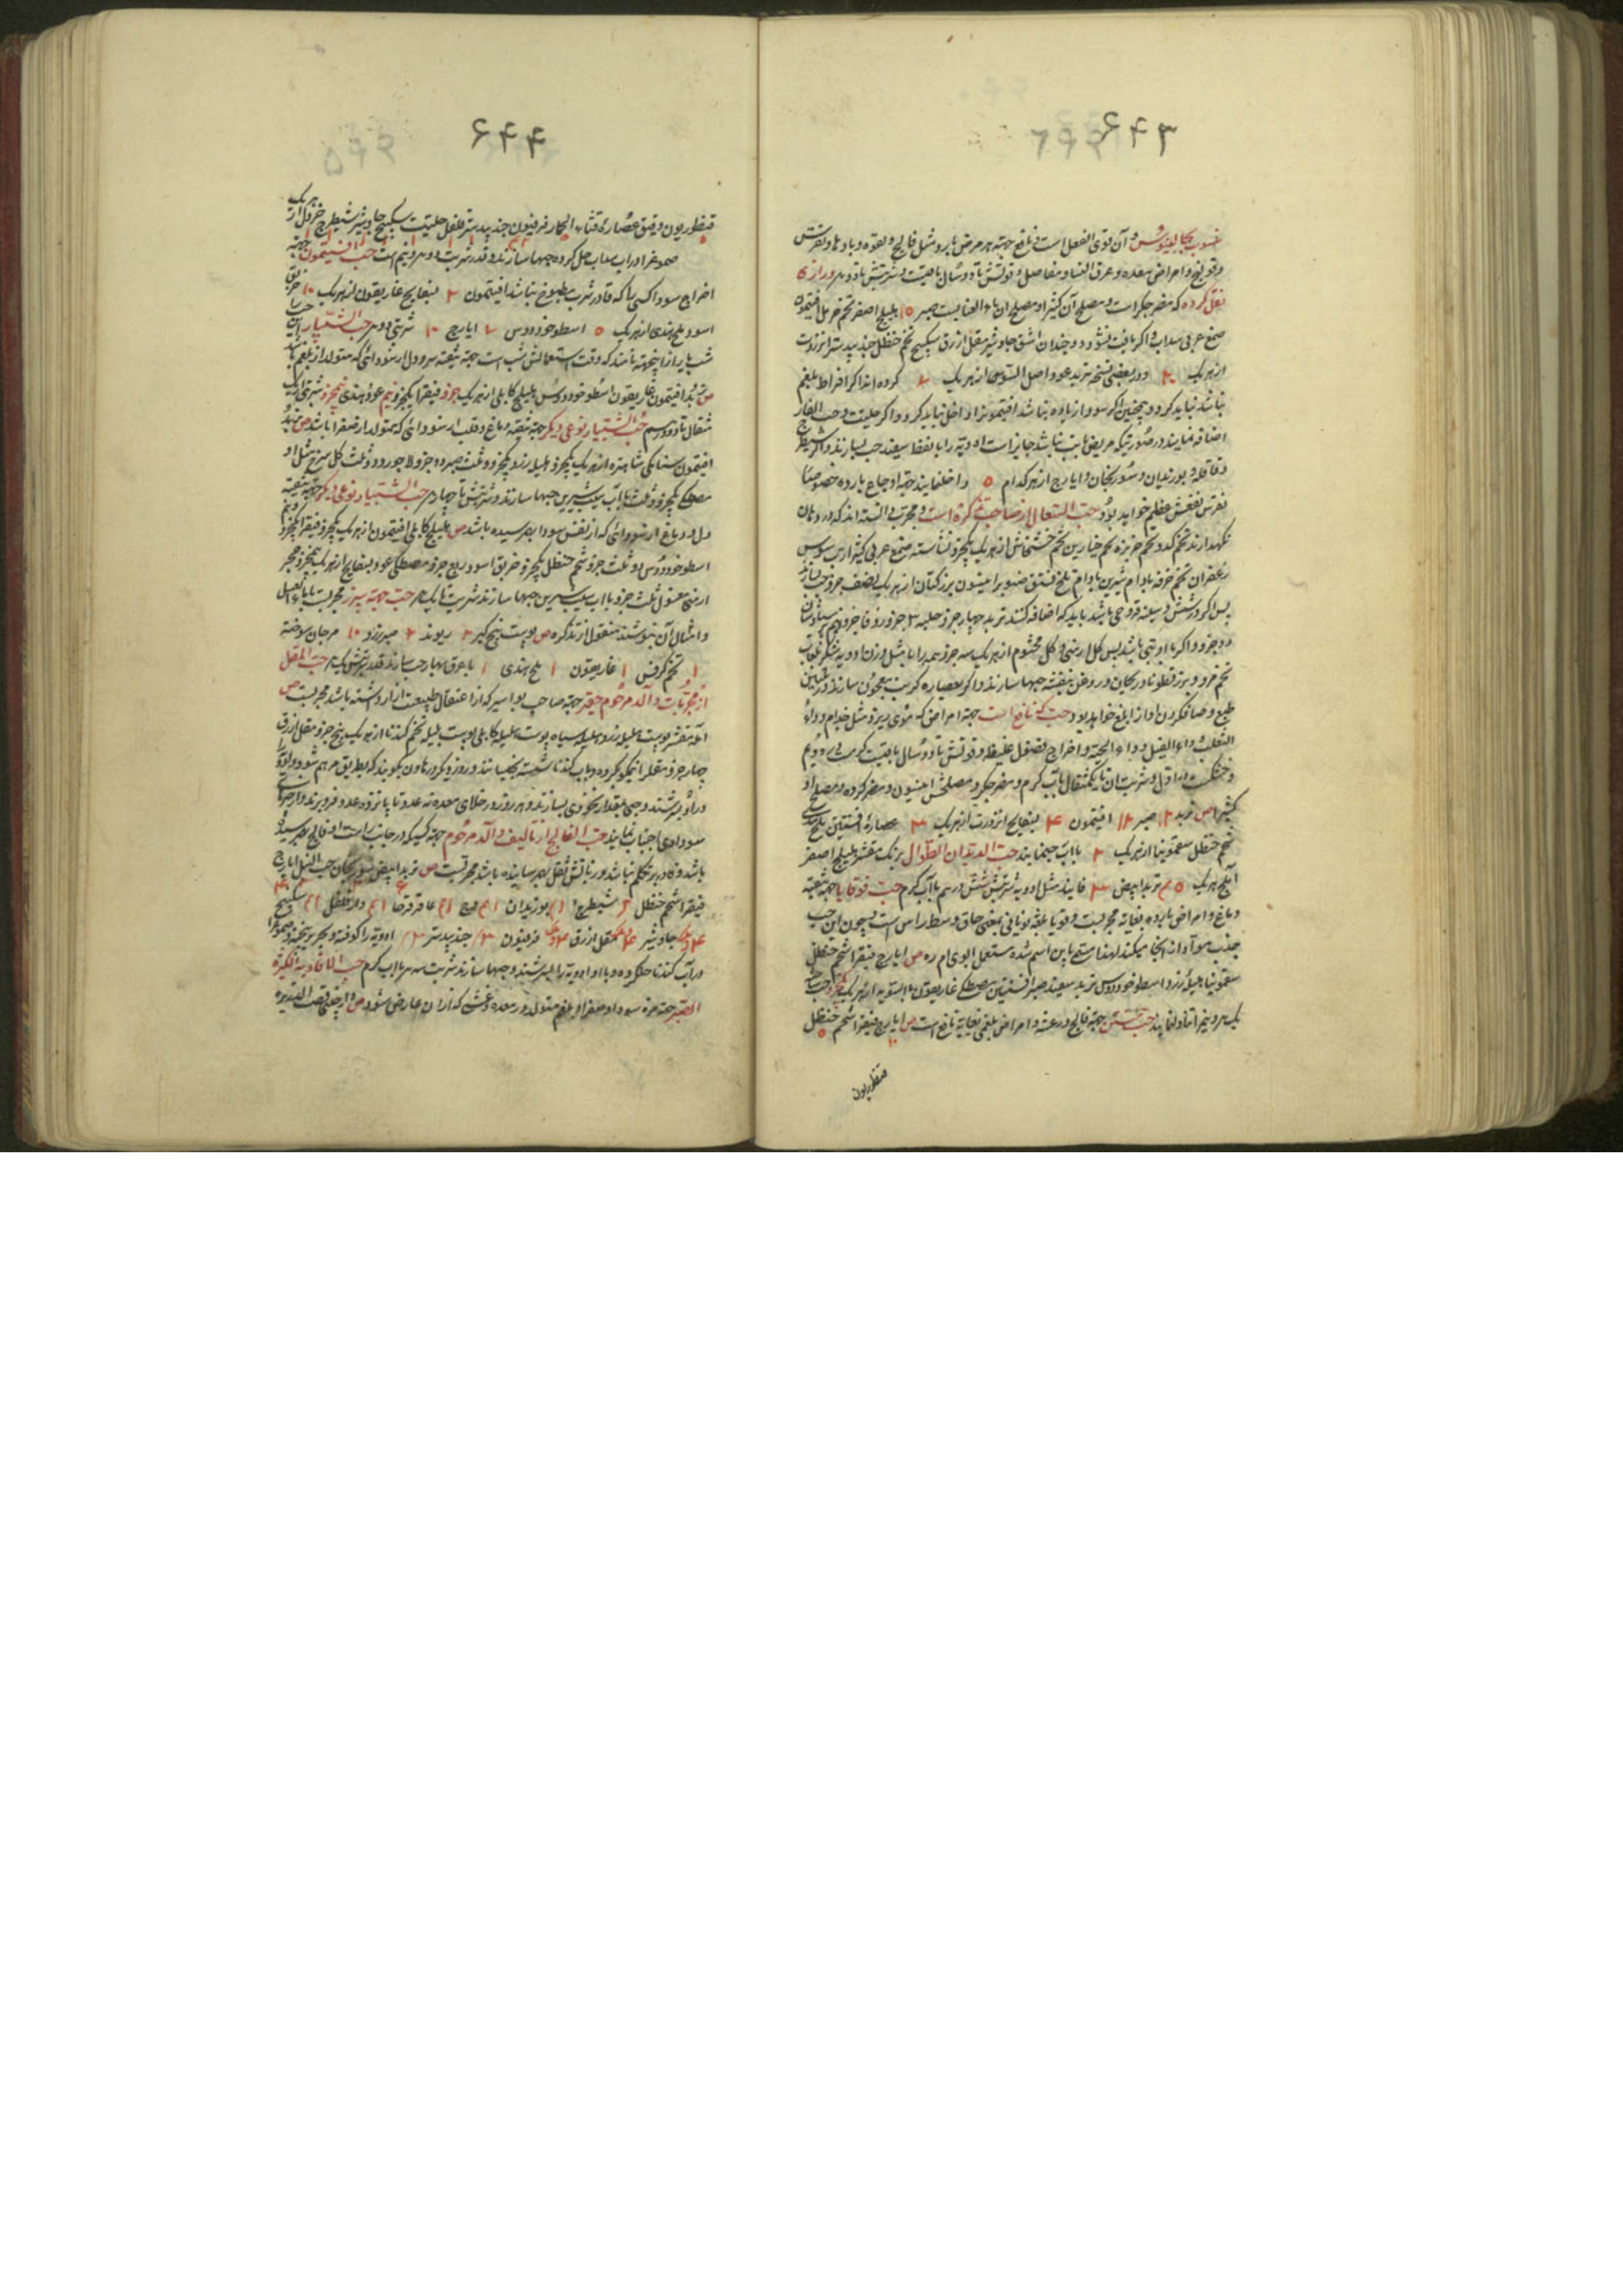 ۶۴۳
منسوب بجالینوس و آن قوی الفعل است و نافع جهة هر مرض بارد مثل فالج و لقوه و بادها و نقرس
و قولنج و امراض معده و عرق النسا و مفاصل و قوتش تا دو سال باقیست و شربتش تا دو درم و رازی
نقل کرده که مضر جگر است و مصلح آن کثیرا و مصلح ان ماء العناب صبر ۱۵ هلیلج اصفر تخم حرمل افتیمون
صمغ عربی سداب و اگر یافت نشود دو چندان اشق جاوشیر مقل ازرق سکبینج تخم حنظل جندبیدستر انزروت
از هر یک ۲۰ و در بعضی نسخ تربد عود اصل السوس از هر یک کرده اند اگر افراط بلغم
نباشد نباید کرد و همچنین اگر سودا زیاده نباشد افتیمون را داخل نباید کرد و اگر حلتیت و حب الغار
اضافه نمایند در صورتیکه مریض تب نباشد جایز است ادویه را با نفط سفید حب بسازند و اگر شیطرج
و قاقله و بوزیدان و سورنجان و ایارج از هر کدام ۵ داخل نمایند جهة اوجاع بارده خصوصا
نقرس نفعش عظیم خواهد بود حب السعال از صاحب تذکره است و مجرب دانسته اند که در دهان
نگهدارند تخم کدو تخم خربزه تخم خیارین تخم خشخاش از هر یک یکجزو نشاسته صمغ عربی کثیرا رب سوس
زعفران تخم خرفه بادام شیرین بادام تلخ فستق صنوبر انیسون بزر کتان از هر یک نصف جزو حب سازند
پس اگر در شش و سینه قروحی باشد باید که اضافه کنند تربد چهار جزو حلبه ۳ جزو زوفا جزو پرسیاوشان
دو جزو و اگر با او تبی باشد پس گل ارمنی و گل مختوم از هر یک سه جزو همه را با مثل وزن ادویه شکر بلعاب
تخم مرو و بزر قطونا و ریحان و روغن بنفشه حبها سازند و اگر بعصاره کرنب معجون سازند و در
طبع و صاف کردن آواز ابلغ خواهد بود حب که نافع است جهة امراضی که موی ریزد مثل جذام و داء
الثعلب و داء الفیل و داء الحیة و اخراج فضول غلیظ و قوتش تا دو سال باقیست گرمست در دویم
و خشکست در اول و شربت ان تا یکمثقال باب گرم و مضر جگر و مصلحش انیسون و مضر کرده و مصلح او
کثیرا ص تربد صبر افتیمون ۴ بسفایج انزروت از هر یک ۳ عصاره افسنتین ملح هندی
تخم حنظل سقمونیا از هر یک ۲ باب حبها نمایند حب الدیدان الطوال برنک مقشر هلیلج اصفر
آملج هر یک ۵ تربد ابیض ۳ فانیذ مثل ادویه شربتش شش درهم باآب گرم حب قوقایا جهة تنقیه
دماغ و امراض بارده بغایة مجربست و قوقایا بلغة یونانی بمعنی حاق وسط راس است و چون این حب
جذب مواد از انجا میکند لهذا مسمی باین اسم شده مستعمل ابوی ام ره ص ایارج فیقرا شحم حنظل
سقمونیا هلیله زرد اسطوخودوس تربد سفید صبر افسنتین مصطکی غاریقون بالسویه از هر یک یکجزو حب سازند
یک درم و نیم تناول نمایند حب منتن جهة فالج و رعشه و امراض بلغمی بغایة نافع است ص ایارج فیقرا شحم حنظل
قنطوریون
۶۴۴
قنطوریون دقیق عصاره قثاء الحمار فرفیون جندبیدستر فلفل حلتیت سکبینج جاوشیر شیطرج خردل از هر یک
صموغ را در اب سداب حل کرده حبها سازند و قدر شربت دو درم و نیم است حب افتیمون جهة
اخراج سودا کسی را که قادر شرب مطبوخ نباشد افتیمون ۲ بسفایج غاریقون از هر یک ۱۰ خربق
اسود ملح هندی از هر یک ۵ اسطوخودوس ایارج ۱۰ شربتی دو درم حب الشبیار این حب را
شب یار از اینجهة نامند که وقت استعمالش شب است جهة تنقیه سر و دل از سودائی که متولد از بلغم باشد
ص تربد افتیمون غاریقون اسطوخودوس هلیلج کابلی از هر یک جزو فیقرا یکجزو نیم عود هندی نیمجزو شربتی از یک
مثقال تا دو درم حب الشبیار نوعی دیگر جهة تنقیه دماغ و قلب از سودائی که متولد از صفرا باشد ص تربد
افتیمون سنامکی شاهتره از هر یک یکجزو هلیله زرد یکجزو و ثلث صبر دو جزو لاجورد دو ثلث گل سرخ مثل او
مصطکی یکجزو و ثلث باآب سیب شیرین حبها سازند و شربتش تا چهار درم حب الشبیار نوعی دیگر جهة تنقیه
دل و دماغ از سودائی که از نفس سودا بهم رسیده باشد ص هلیلج کابلی افتیمون از هر یک یکجزو فیقرا یکجزو و نیم
اسطوخودوس دو ثلث جزو شحم حنظل یکجزو خربق اسود ربع جزو مصطکی عود بسفایج از هر یک نیمجزو حجر
ارمنی مغسول ثلث جزو بااب سیب شیرین حبها سازند شربت تا یکدرم حب جهة سپرز مجربست با ماء العسل
و امثال آن بنوشند منقول از تذکره ص پوست بیخ کبر ۲ ریوند ۲ صبر زرد ۱۰ مرجان سوخته
۱ تخم کرفس ۱ غاریقون ۱ ملح هندی ۱ با عرق بهار حب سازند قدر شربتش یکدرم حب المقل
از مجربات والد مرحوم حقیر جهة صاحب بواسیر که از اعتقال طبیعت ازار داشته باشد مجربست ص
آمله مقشر پوست هلیله زرد هلیله سیاه پوست هلیله کابلی پوست بلیله تخم گندنا از هر یک پنج جزو مقل ازرق
چهار جزو مقل را نیمکوب کرده در اب گندنا شب بخیسانند و روز دیگر در هاون بکوبند که بطریق مرهم شود و ادویه
در او بسرشند و حبی بمقدار نخودی بسازند و هر روز در خلای معده نه عدد تا پانزده عدد فرو برند و از چیزهای
سوداوی اجتناب نمایند حب الفالج از تالیف والد مرحوم جهة کسیکه در جانب راست او فالج بهم رسیده
باشد و قادر بر تکلم نباشد و زبانش ثقل بهم رسانیده باشد مجربست ص تربد ابیض سورنجان حب النیل ایارج
فیقرا شحم حنظل شیطرج بوزیدان وج عاقرقرحا دارفلفل سکبینج
جاوشیر مقل ازرق فرفیون جندبیدستر ادویه را کوفته و بحریر بیخته و صموغ را
در آب گندنا حل کرده و باو ادویه را بسرشند و حبها سازند شربت سه درم باآب گرم حب الافاویه الکبیر
الصبر جهة مره سودا و صفرا و بلغم متولد در معده و غشی که از ان عارض شود ص دارچینی قصب الذریره